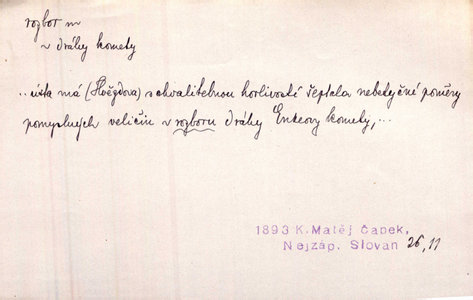 rozbor m
v dráhy komety
..ústa má (Hvězdova) s chvalitebnou horlivostí šeptala nebetyčné poměry
pomyslných veličin v rozboru dráhy Enkeovy komety,...
1893 K.Matěj Čapek,
Nejzáp. Slovan 26,11